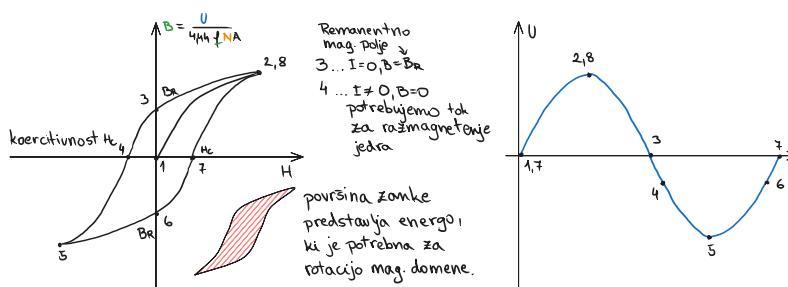 B = U / 4,44 f N A
2,8
3
BR
koercitivnost Hc
4
1
Hc
7
H
6
BR
5
Remanentno
mag. polje
3 ... I=0, B=BR
4 ... I≠0, B=0
potrebujemo tok
za razmagnetenje
jedra
površina zanke
predstavlja energo,
ki je potrebna za
rotacijo mag. domene.
U
2,8
1,7
3
7
4
6
5